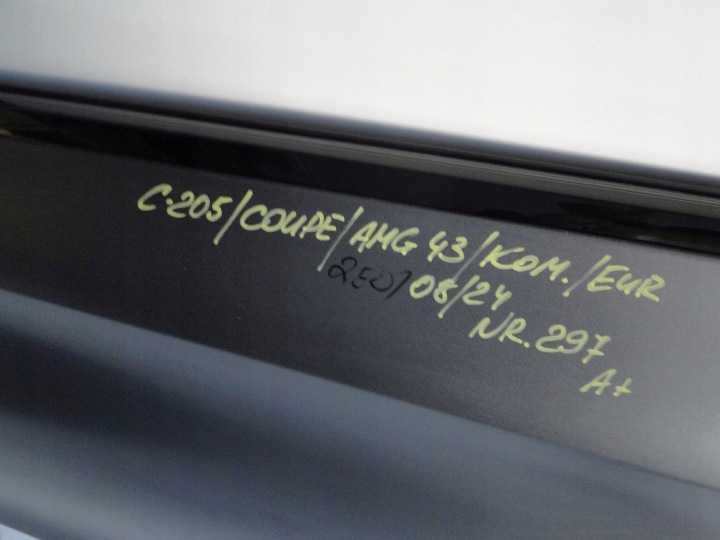 C-205/COUPE/AMG 43/KOM./EUR
2501 08/24
NR. 297
A+